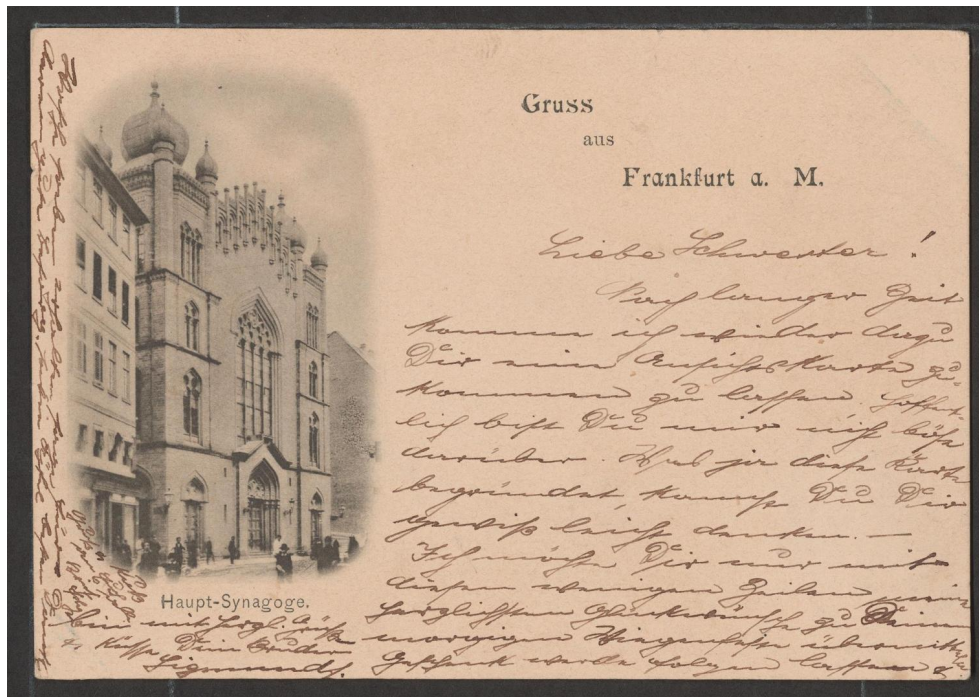 Gruss
aus
Frankfurt a. M.
Liebe Schwester!
Nach langer Zeit
komme ich wieder dazu
Dir eine Ansichtskarte zu-
kommen zu lassen. Hoffent-
lich bist Du mir nicht böse
darüber. Was ja diese Karte
begründet kannst Du Dir
gewiß leicht denken. —
Ich möchte Dir nur mit
diesen wenigen Zeilen meine
herzlichsten Glückwünsche zu Deinem
morgigen Wiegenfeste übermitteln
Geschenk werde folgen lassen &
bin mit herzl. Grüße
Küsse Dein Bruder
Sigmund.
Haupt-Synagoge.